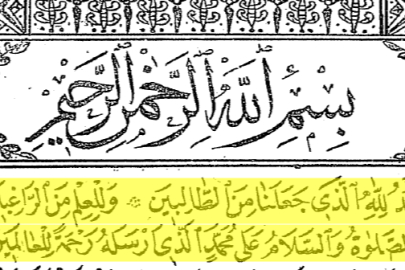 بِسْمِ اللّٰهِ الرَّحْمٰنِ الرَّحِيْمِ
لِلّٰهِ الَّذِي جَعَلَنَا مِنَ الطَّالِبِينَ ۞ وَلِلْعِلْمِ مِنَ
وَالسَّلَامُ عَلَى مُحَمَّدٍ الَّذِي أَرْسَلَهُ رَحْمَةً لِلْعَالَمِينَ